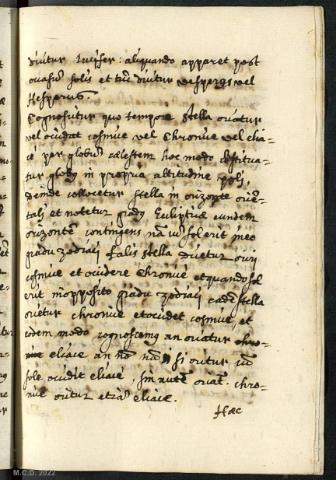 dicitur Lucifer: aliquando apparet post
ocasū solis et tūc dicitur vesperus vel
Hesperus.
Cognoscitur quo tempore stella oriatur
vel occidat cosmice vel chronice vel elia=
cè per globū cælestem hoc modo constitua=
tur globus in propria altitudine poli,
deinde collocetur stella in orizonte oriē=
tali et notetur gradus Ecliptice eundem
orizontē contingens nā cū sol erit in eo
gradu zodiaci talis stella dicetur oriri
cosmice et occidere chronice et quando sol
erit in opposito gradu zodiaci eadē stella
orietur chronice et occidet cosmice, et
eodem modo cognoscemus an oriatur chro=
eliace an nō nā si oritur cū
sole occidit eliacè sin autē oriat. chro=
nice oritur etiā eliace.
Hæc
M.C.D. 2022